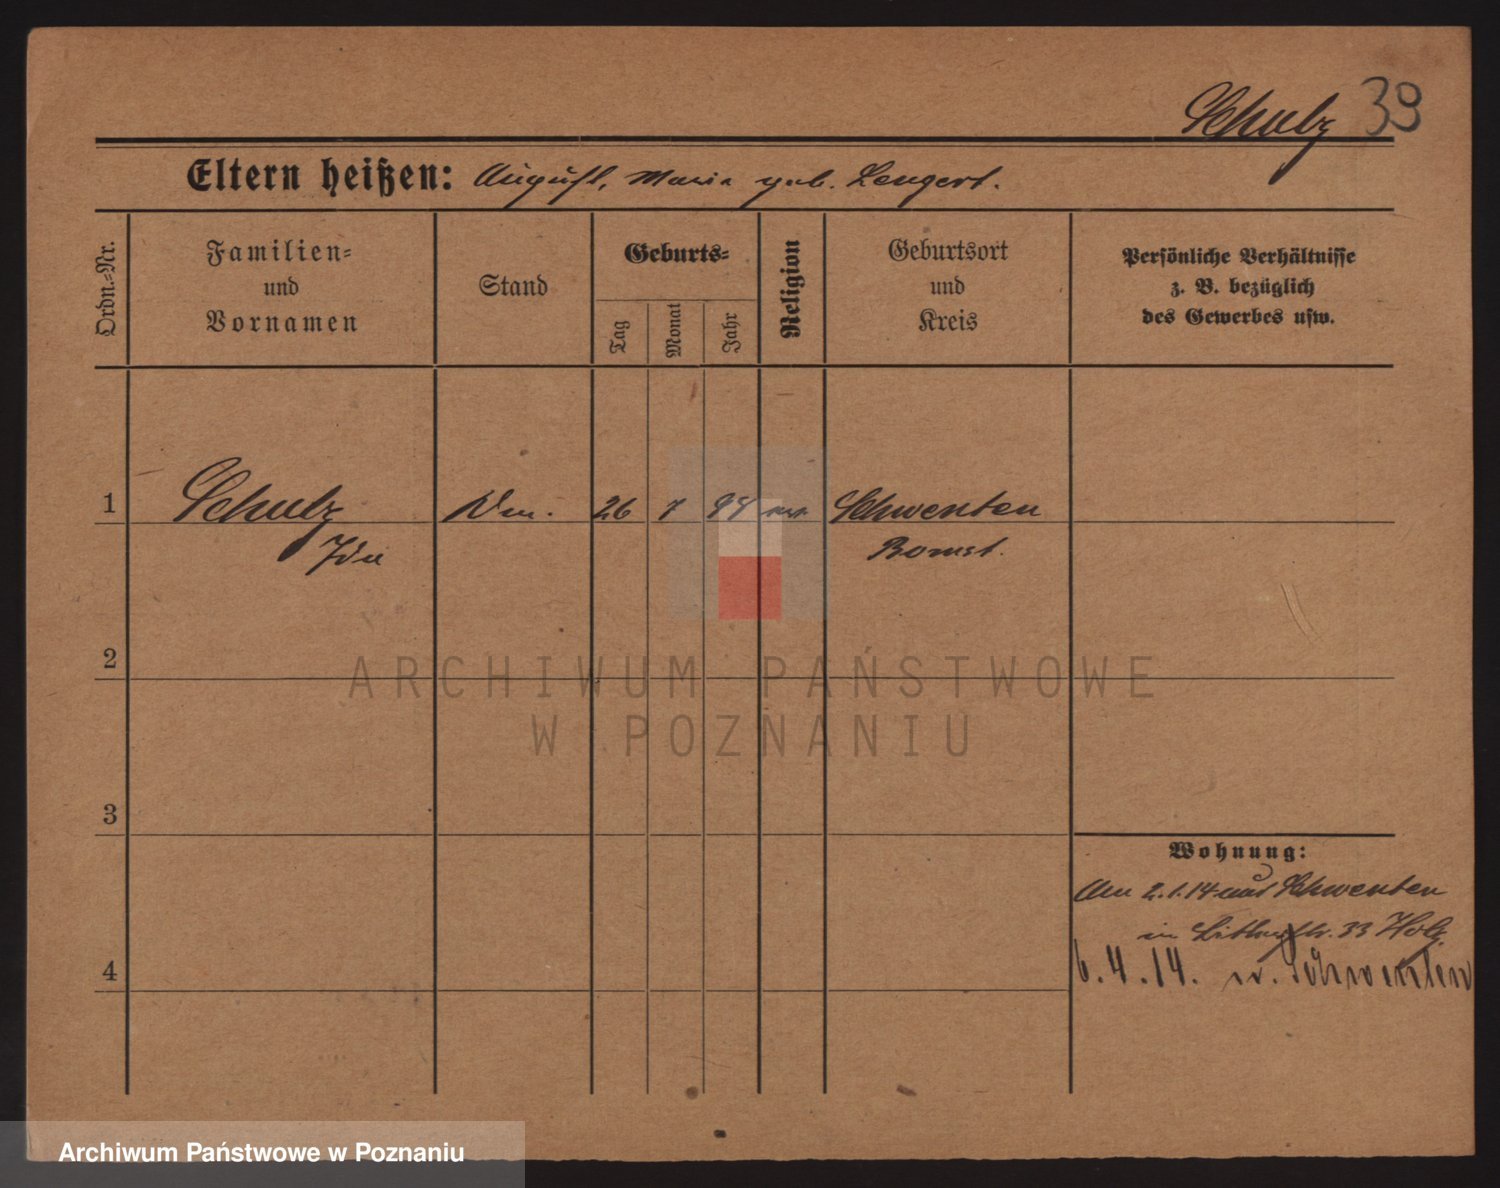 Schulz 39
Eltern heißen: August, Maria geb. Lengert.
Ordn.-Nr.
Familien-
und
Vornamen
Stand
Geburts-
Tag
Monat
Jahr
Religion
Geburtsort
und
Kreis
Persönliche Verhältnisse
z. B. bezüglich
des Gewerbes usw.
1 Schulz 26 7 Schwenten
Ida Bomst.
2
3
4
Wohnung:
Am 2.1.14 aus Schwenten
in 33 Holz
6.4.14. n. Schwenten
ARCHIWUM PAŃSTWOWE
W POZNANIU
Archiwum Państwowe w Poznaniu